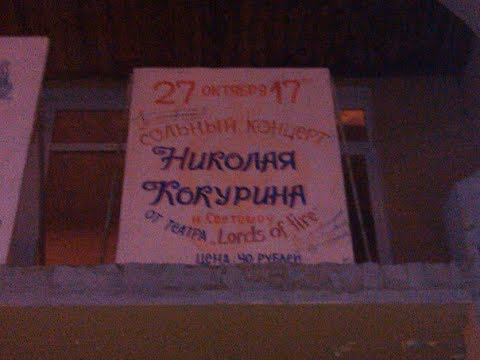 27 ОКТЯБРЯ 17
СОЛЬНЫЙ КОНЦЕРТ
НИКОЛАЯ
КОКУРИНА
И СВЕТОШОУ
ОТ ТЕАТРА „Lords of fire"
ЦЕНА 40 РУБЛЕЙ